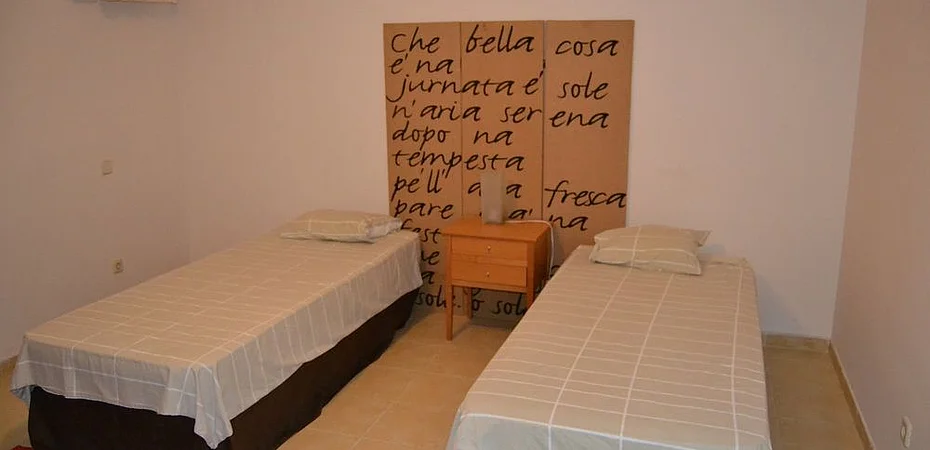 Che bella cosa
e' na
jurnata e' sole
n'aria serena
dopo na
tempesta
pe'll' a a fresca
pare a' na
fest
he
a
sole. o sol